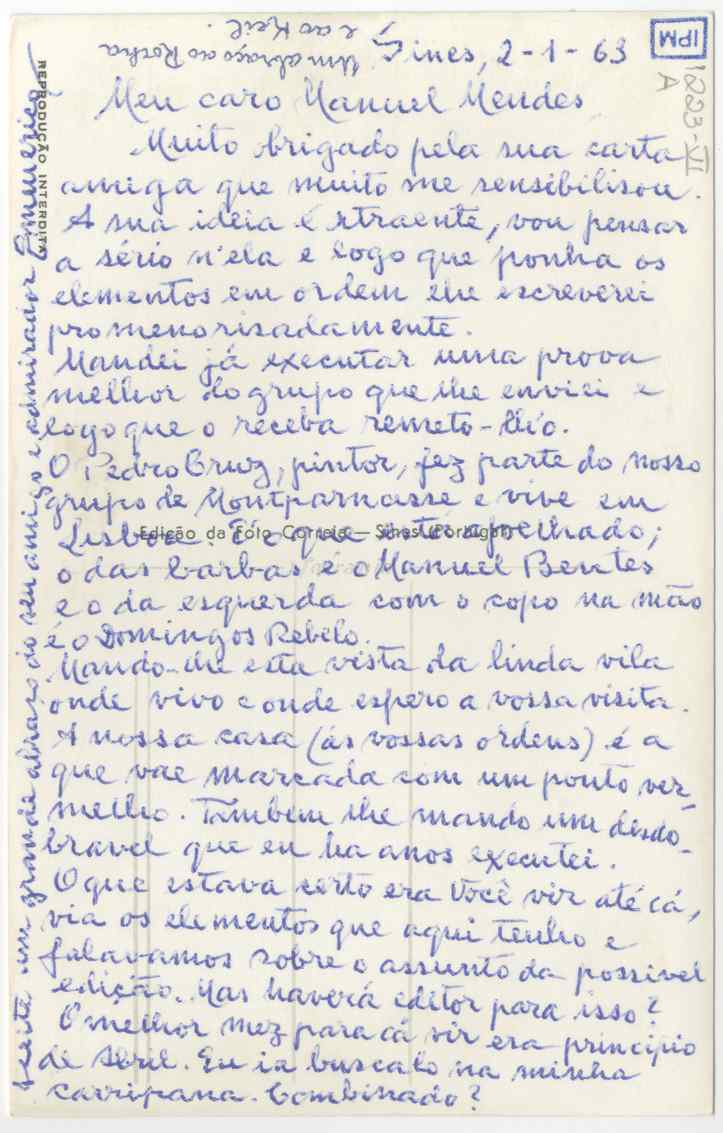 Sines, 2-1-63
Meu caro Manuel Mendes
Muito obrigado pela sua carta
amiga que muito me sensibilisou.
A sua ideia é atraente, vou pensar
a sério n'ela e logo que ponha os
elementos em ordem lhe escreverei
promenorisadamente.
Mandei já executar uma prova
melhor do grupo que lhe enviei e
logo que o receba remeto-lh'o.
O Pedro Cruz, pintor, fez parte do nosso
grupo de Montparnasse e vive em
Lisboa. É o que está joelhado;
o das barbas é o Manuel Bentes
e o da esquerda com o copo na mão
é o Domingos Rebelo.
Mando-lhe esta vista da linda vila
onde vivo e onde espero a vossa visita.
A nossa casa (ás vossas ordens) é a
que vae marcada com um ponto ver-
melho. Tambem lhe mando um desdo-
bravel que eu ha anos executei.
O que estava certo era Você vir até cá,
via os elementos que aqui tenho e
falavamos sobre o assunto da possivel
edição. Mas haverá editor para isso?
O melhor mez para cá vir era principio
de Abril. Eu ia buscalo na minha
carripana. Combinado?
Aceite um grande abraço do seu amigo e admirador Emmerico
Um abraço ao Rocha
e ao Keil.
REPRODUÇÃO INTERDITA
Edição da Foto Correia — Sines (Portugal)
IPM
1223-VI
A